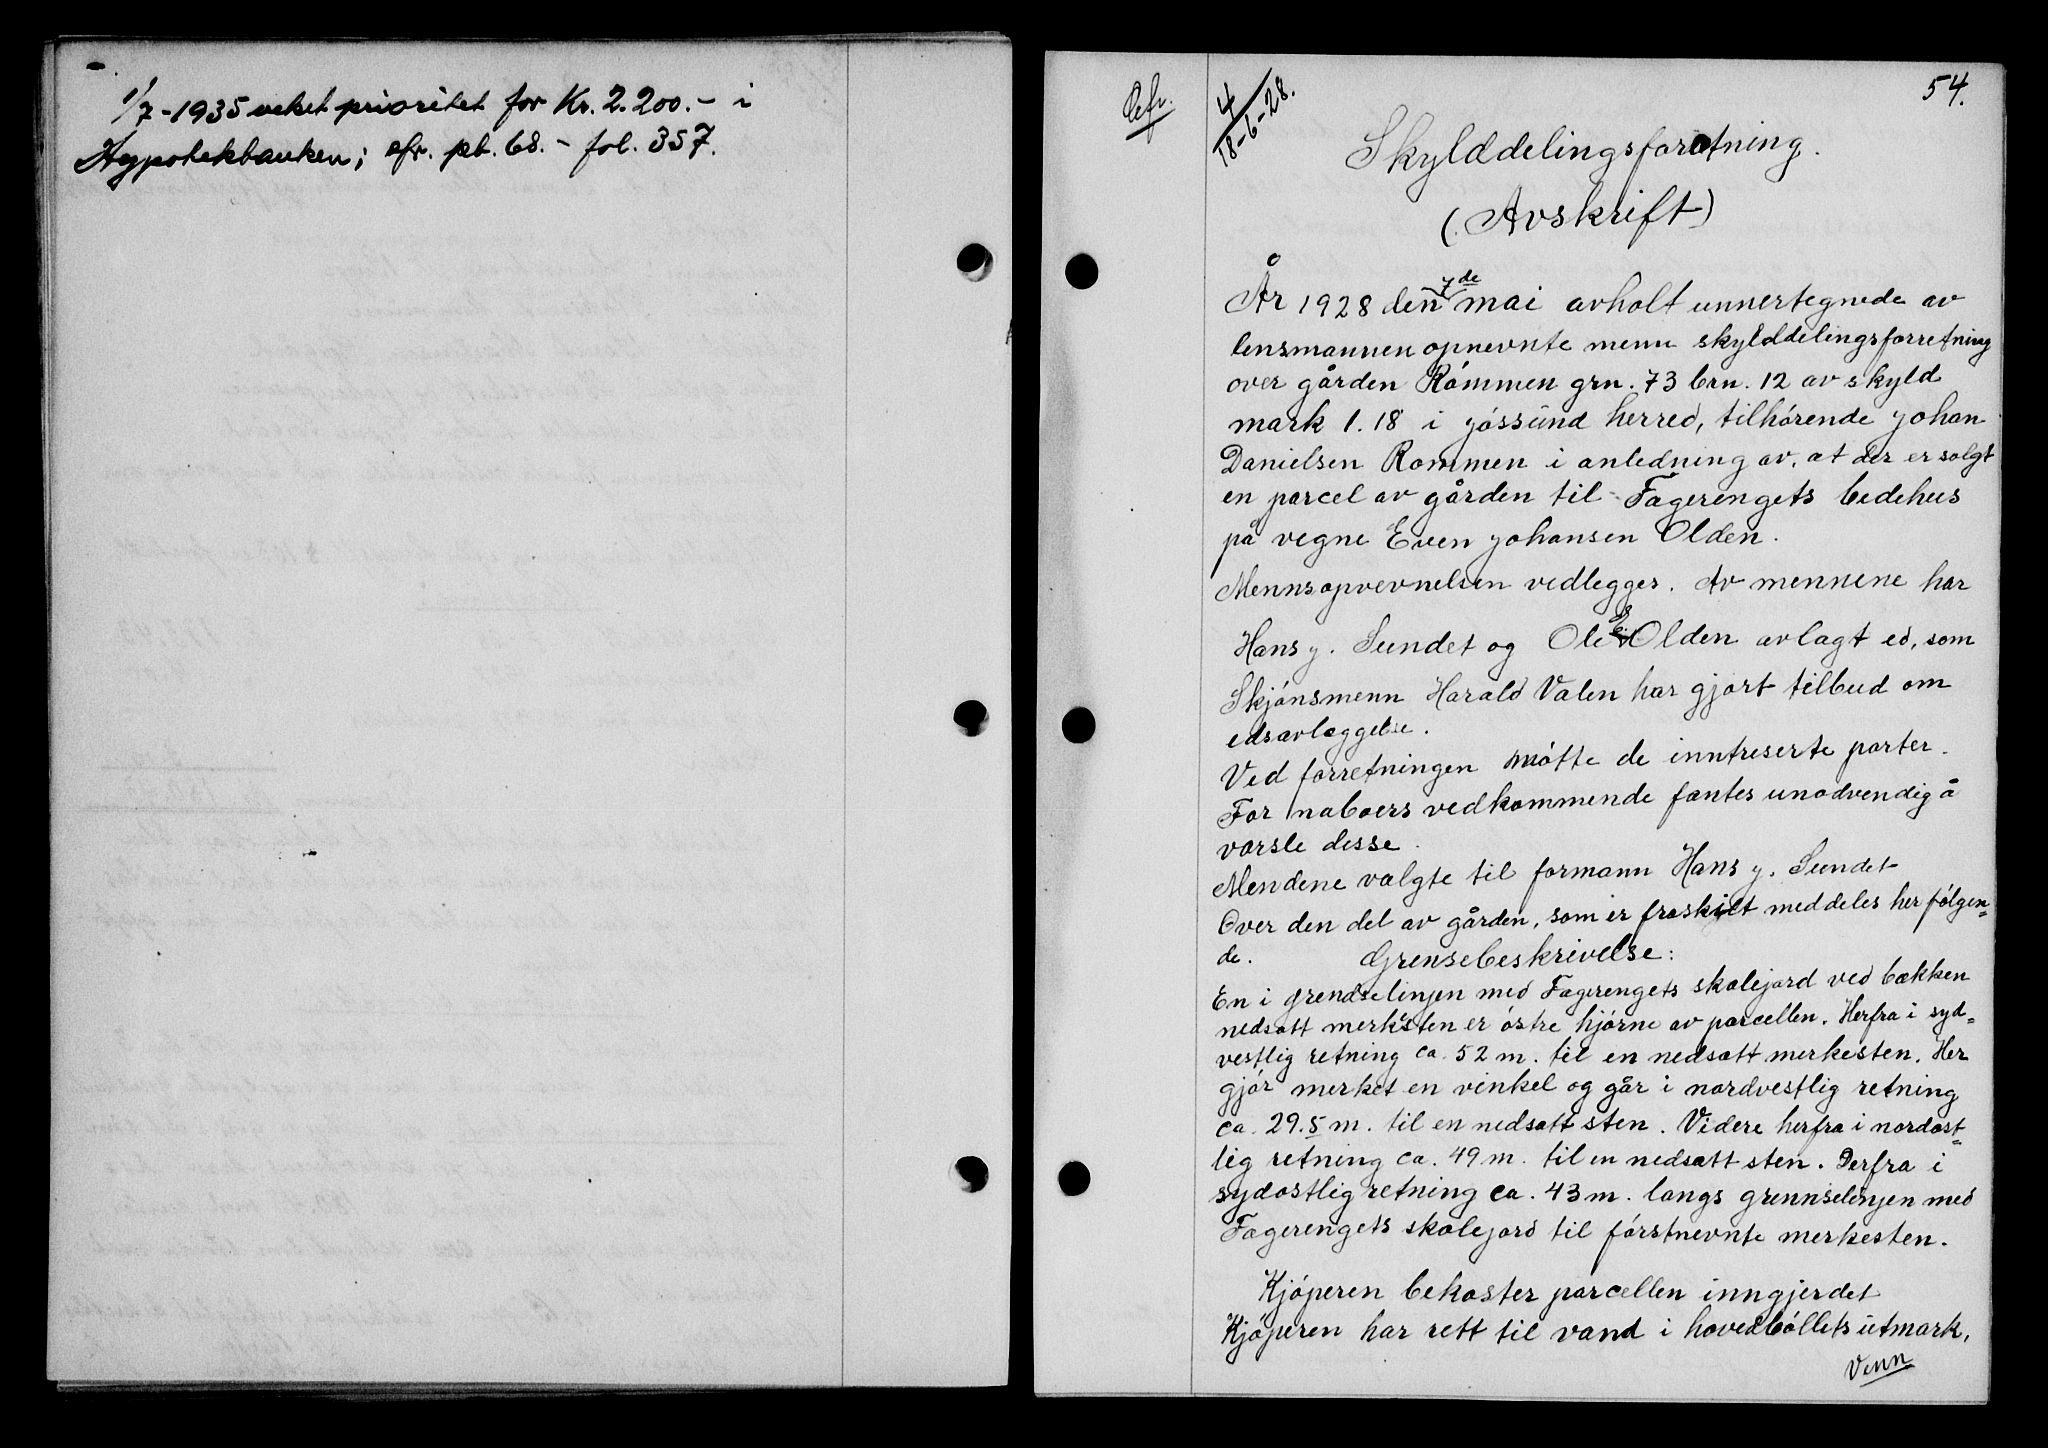 1/7-1935 veket prioritet for Kr. 2.200.- i
Hypotekbanken; cfr. pb. 68. - fol. 357.
54.
4
18-6-28.
Skylddelingsforetning.
(Avskrift)
År 1928 den 7de mai avholt unnertegnede av
lensmannen opnevnte menn skylddelingsforretning
over gården Rómmen grn. 73 brn. 12 av skyld
mark 1.18 i jóssund herred, tilhórende Johan
Danielsen Rommen i anledning av, at der er solgt
en parcel av gården til Fagerengets bedehus
på vegne Even Johansen Olden.
Mennsopnevnelsen vedlegges. Av mennene har
Hans J. Sundet og Ole Olden avlagt ed, som
Skjónsmenn Harald Valen har gjort tilbud om
edsavleggelse.
Ved forretningen mótte de inntreserte parter.
For naboers vedkommende fantes unodvendig å
varsle desse.
Mendene valgte til formann Hans J. Sundet
Over den del av gården, som er fraskilt meddeles her fólgen=
de. Grensebeskrivelse:
En i grendselinjen med Fagerengets skolejord ved bækken
nedsatt merksten er óstre hjórne av parcellen. Herfra i syd=
vestlig retning ca. 52 m. til en nedsatt merkesten. Her
gjór merket en vinkel og går i nordvestlig retning
ca. 29.5 m. til en nedsatt sten. Videre herfra i nordost=
lig retning ca. 49 m. til en nedsatt sten. Derfra i
sydostlig retning ca. 43 m. langs grennselinjen med
Fagerengets skolejord til fórstnevnte merkesten.
Kjóperen bekoster parcellen inngjerdet
Kjóperen har rett til vand i hovedbóllets utmark,
Venn